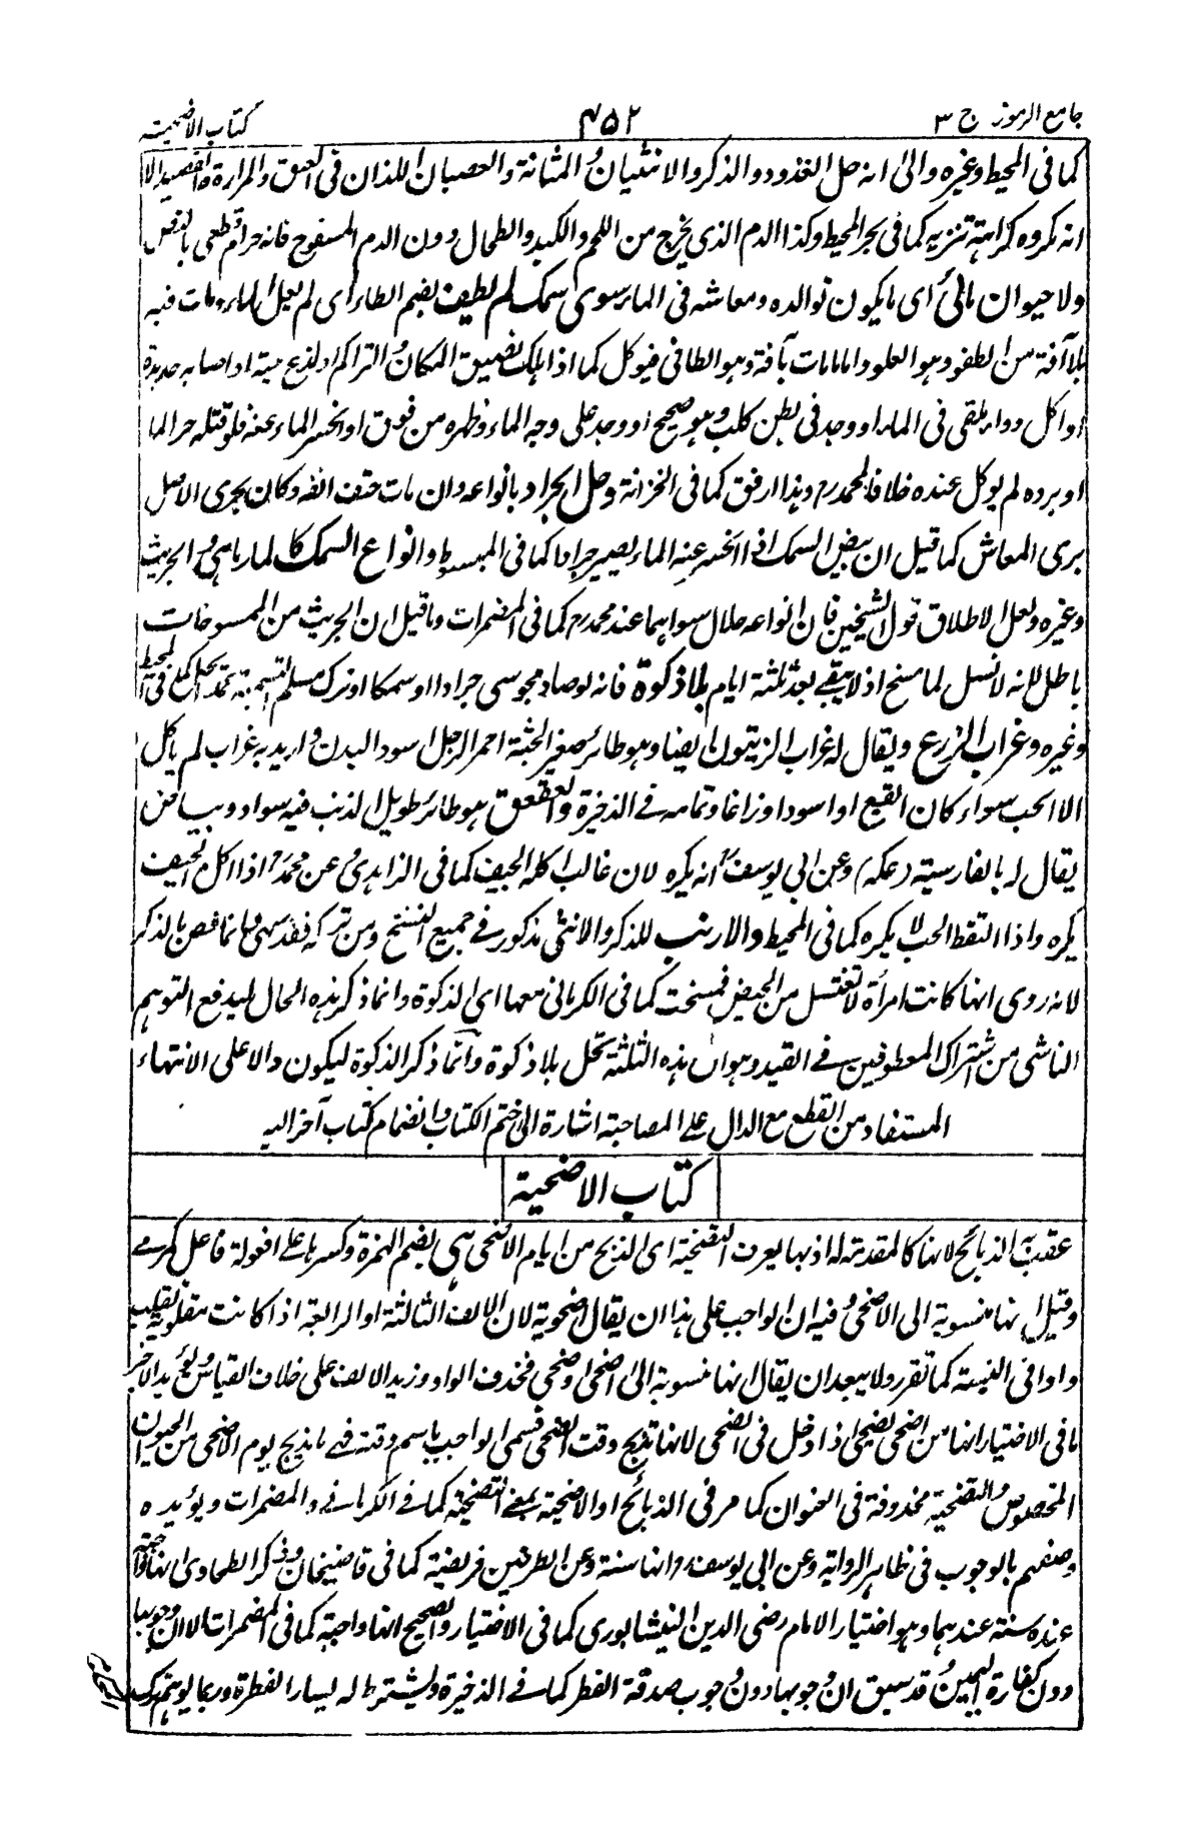 جامع الرموز ج ٣
٤٥٢
كتاب الاضحية
كما فى المحيط وغيره والى انه حل الغدود والذكر والانثيان والمثانة والعصبان اللذان فى العنق والمرارة والقصيد الا
انه مكروه كراهة تنزيه كما فى بحر المحيط وكذا الدم الذى يخرج من اللحم والكبد والطحال دون الدم المسفوح فانه حرام قطعى بالنص
ولا حيوان مائى اى ما يكون توالده ومعاشه فى الماء سوى سمك لم يطف بضم الطاء اى لم يعل الماء ومات فيه
بلا آفة من الطفو وهو العلو واما ما مات بآفة وهو الطافى فيوكل كما اذا هلك لضيق المكان والتراكم او لذبح حية او اصابه حديدة
او اكل دواء يلقى فى الماء او وجد فى بطن كلب وهو صحيح او وجد على وجه الماء وظهره من فوق او انحسر الماء عنه فلو قتله حر الماء
او برده لم يوكل عنده خلافا لمحمد رح وهذا ارفق كما فى الخزانة وحل الجراد بانواعه وان مات حتف انفه وكان بحرى الاصل
برى المعاش كما قيل ان بيض السمك اذا انحسر عنه الماء يصير جرادا كما فى المبسوط وانواع السمك كالمارماهى والجريث
وغيره ولعل الاطلاق قول الشيخين فان انواعه حلال سواهما عند محمد رح كما فى المضمرات وما قيل ان الجريث من الممسوخات
باطل لانه لا نسل لما مسخ اذ لا يبقى بعد ثلثة ايام بلا ذكوة فانه لو صاد مجوسى جرادا او سمكا او ترك مسلم التسمية عمدا يحل كما فى المحيط
وغيره وغراب الزرع ويقال له غراب الزيتون ايضا وهو طائر صغير الجثة احمر الرجل اسود البدن واريد به غراب لم ياكل
الا الحب سواء كان ابقع او اسود او زاغا وتمامه فى الذخيرة والعقعق هو طائر طويل الذنب فيه سواد وبياض
يقال له بالفارسية (عكه) وعن ابى يوسف رح انه يكره لان غالب اكله الجيف كما فى الزاهدى وعن محمد رح اذا اكل الجيف
يكره واذا التقط الحب لا يكره كما فى المحيط والارنب للذكر والانثى مذكور فى جميع النسخ ومن تركه فقد سهى وانما خص بالذكر
لانه روى انها كانت امرأة لا تغتسل من الحيض فمسخت كما فى الكرمانى معها اى الذكوة وانما ذكر هذه الحال ليدفع التوهم
الناشى من اشتراك المعطوفين فى القيد وهو ان هذه الثلثة تحل بلا ذكوة وانما ذكر الذكوة ليكون دالا على الانتهاء
المستفاد من القطع مع الدال على المصاحبة اشارة الى ختم الكتاب وانضمام كتاب آخر اليه
كتاب الاضحية
عقب به الذبائح لانها كالمقدمة له اذ بها يعرف التضحية اى الذبح من ايام الاضحى هى بضم الهمزة وكسرها على افعولة فاعل كمرمى
وقيل انها منسوبة الى الاضحى وفيه ان الواجب على هذا ان يقال اضحوية لان الالف الثالثة او الرابعة اذا كانت منقلبة يقلب
واوا فى النسبة كما تقرر ولا يبعد ان يقال انها منسوبة الى اضحى وضحى فحذف الواو وزيد الالف على خلاف القياس ويؤيد الاخير
ما فى الاختيار انها من اضحى يضحى اذا دخل فى الضحى لانها تذبح وقت الضحى فسمى الواجب باسم وقته فهى ما يذبح يوم الاضحى من الحيوان
المخصوص والتضحية محذوفة فى العنوان كما مر فى الذبائح او الاضحية بمعنى التضحية كما فى الكرمانى والمضمرات ويؤيده
وصفهم بالوجوب فى ظاهر الرواية وعن ابى يوسف رح انها سنة وعن الطرفين فريضة كما فى قاضيخان وذكر الطحاوى انها واجبة
عنده سنة عندهما وهو اختيار الامام رضى الدين النيشابورى كما فى الاختيار والصحيح انها واجبة كما فى المضمرات الا ان وجوبها
دون كفارة اليمين وقد سبق ان وجوبها دون وجوب صدقة الفطر كما فى الذخيرة ويشترط له يسار الفطرة وربما يوهم ترك